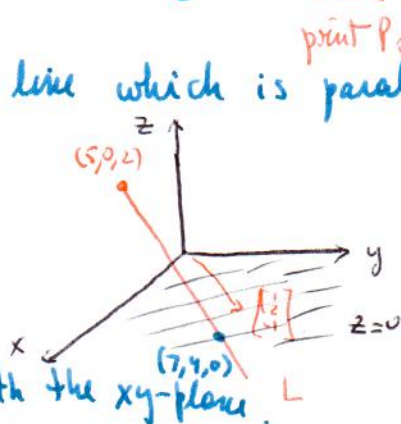 point P
line which is paral
z
(5,0,2)
y
[1 2 -1]
z=0
x
(7,4,0)
th the xy-plane.
L